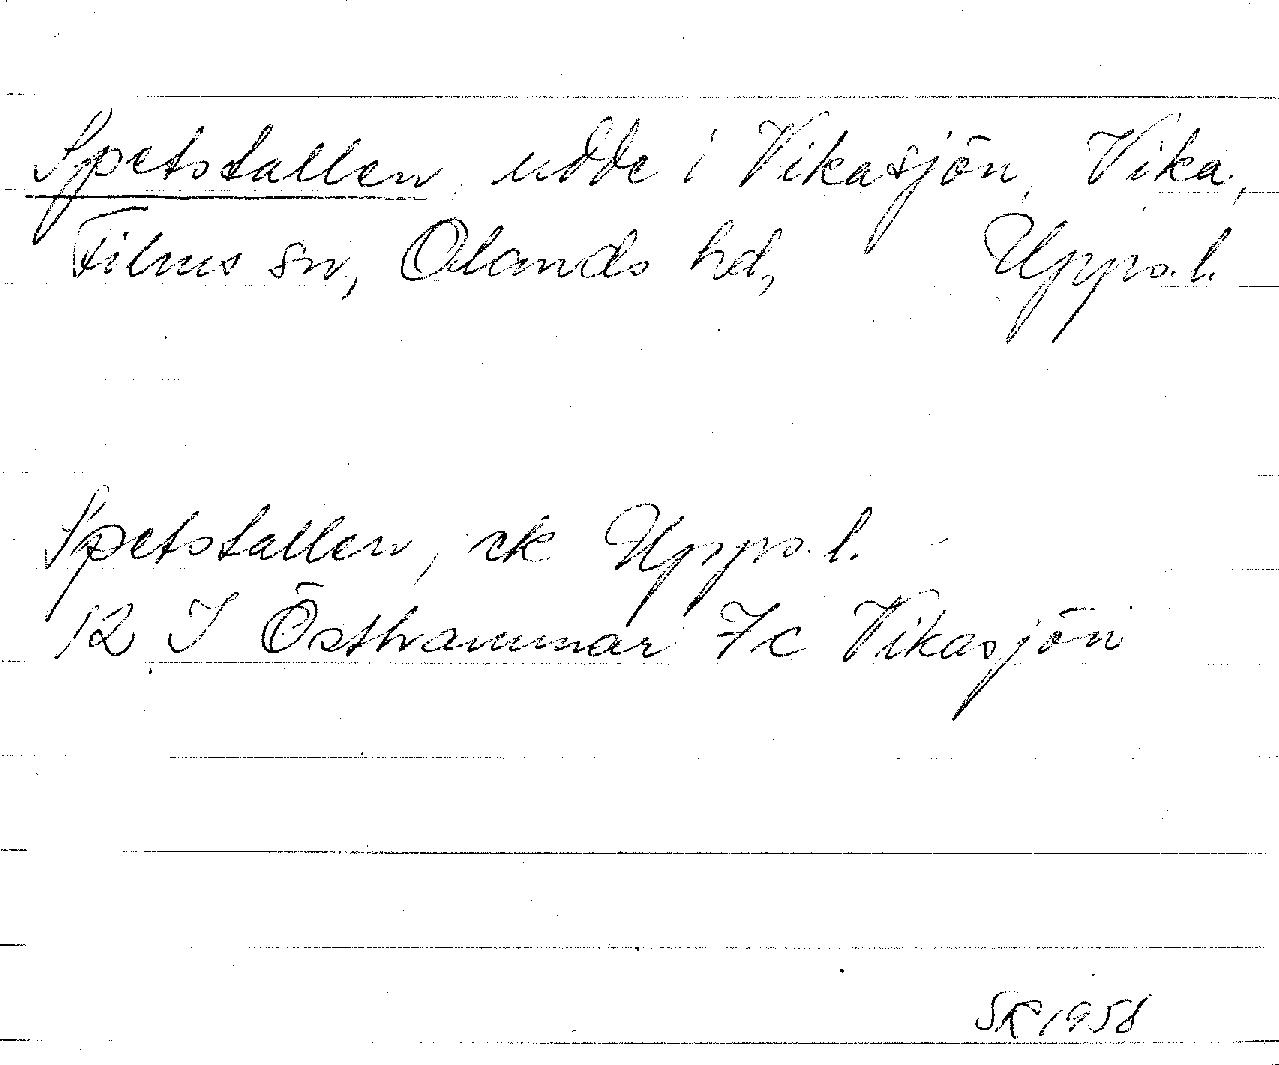 Spetstallen, udde i Vikasjön, Vika,
Films sn, Olands hd, Upps.l.
Spetstallen, ek Upps.l.
12 I Östhammar 7c Vikasjön
SR 1958